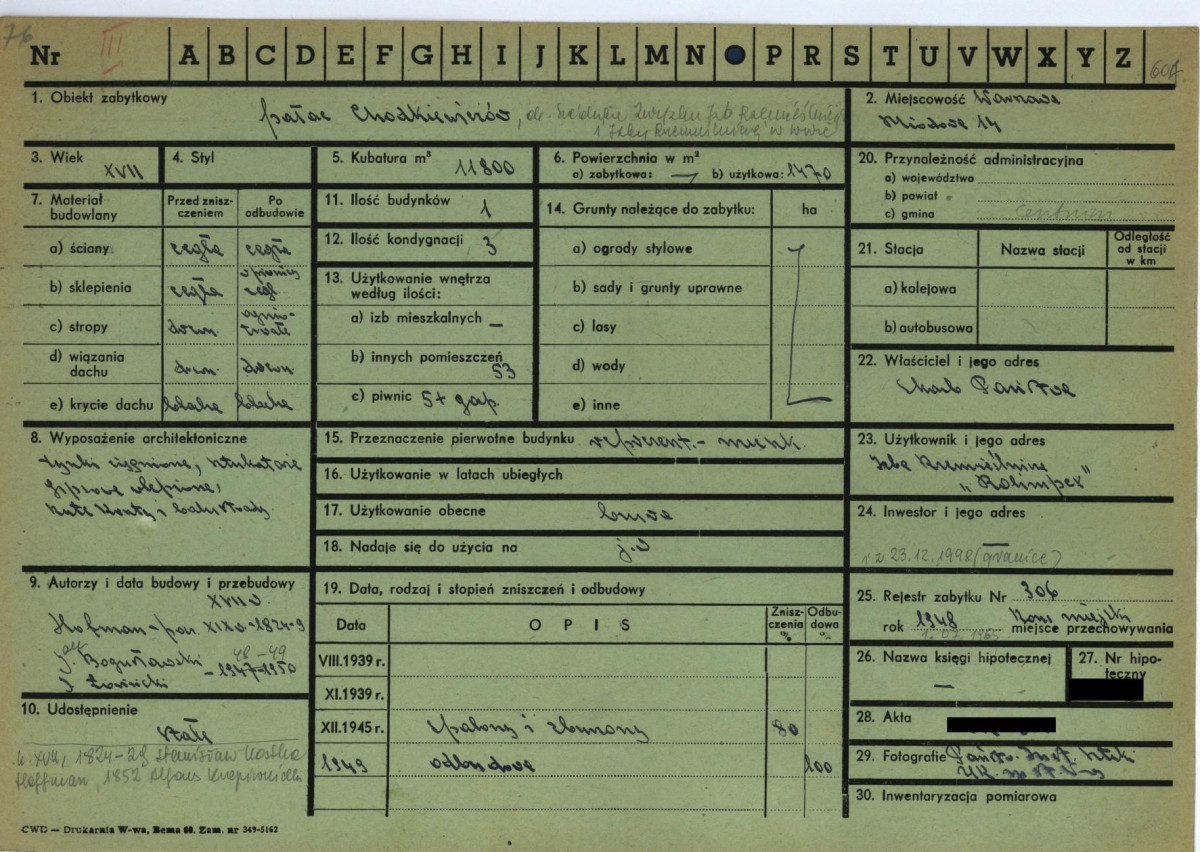 76
Nr III A B C D E F G H I J K L M N P R S T U V W X Y Z 60A
1. Obiekt zabytkowy pałac Chodkiewiczów,
i Izby Rzemieślniczej w W-wie
2. Miejscowość Warszawa
Miodowa 14
3. Wiek XVII
4. Styl
5. Kubatura m³ 11800
6. Powierzchnia w m²
a) zabytkowa: — b) użytkowa: 1470
20. Przynależność administracyjna
a) województwo
b) powiat
c) gmina
7. Materiał budowlany
Przed zniszczeniem
Po odbudowie
a) ściany cegła cegła
b) sklepienia cegła w piwnicy cegł.
c) stropy drewn. ognio-trwałe
d) wiązania dachu drewn. drewn.
e) krycie dachu blacha blacha
11. Ilość budynków 1
12. Ilość kondygnacji 3
13. Użytkowanie wnętrza
według ilości:
a) izb mieszkalnych —
b) innych pomieszczeń 53
c) piwnic 5+
14. Grunty należące do zabytku: ha
a) ogrody stylowe
b) sady i grunty uprawne
c) lasy
d) wody
e) inne
21. Stacja
Nazwa stacji
Odległość od stacji w km
a) kolejowa
b) autobusowa
22. Właściciel i jego adres
Skarb Państwa
8. Wyposażenie architektoniczne
tynki ciągnione, sztukaterie
gipsowe
kute kraty i balustrady.
15. Przeznaczenie pierwotne budynku reprezent. - mieszk.
16. Użytkowanie w latach ubiegłych
17. Użytkowanie obecne biura
18. Nadaje się do użycia na j.w
23. Użytkownik i jego adres
Izba Rzemieślnicza
„Rolimpex"
24. Inwestor i jego adres
—
r z 23.12.1998 (granice)
9. Autorzy i data budowy i przebudowy
XVII w
Hofman - XIX w - 1824-9
48-49
J. Bogusławski - 1947-1950
J Łowiński
19. Data, rodzaj i stopień zniszczeń i odbudowy
Data OPIS Zniszczenia % Odbudowa %
VIII.1939 r.
XI.1939 r.
XII.1945 r. spalony i zburzony 80
1949 odbudowa 100
25. Rejestr zabytku Nr 306
rok 1948 miejsce przechowywania Kons miejski
1.07.1965
26. Nazwa księgi hipotecznej —
27. Nr hipoteczny
10. Udostępnienie
stałe
k. XVII, 1824-28 Stanisław Kostka
Hoffman, 1852 Alfons Kropiwnicki
28. Akta
29. Fotografie Państw. Inst. Sztuki
30. Inwentaryzacja pomiarowa
CWD — Drukarnia W-wa, Bema 60. Zam. nr 349-5162